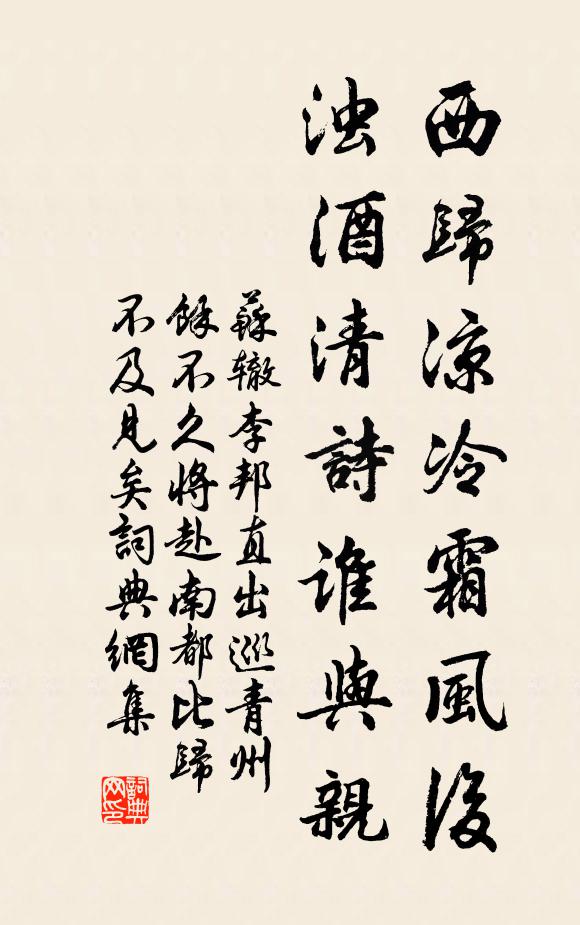 西歸凉冷霜風後
浊酒清詩谁與親
蘇辙李邦直出巡青州
餘不久將赴南都比歸
不及見矣詞典網集
詞典網印